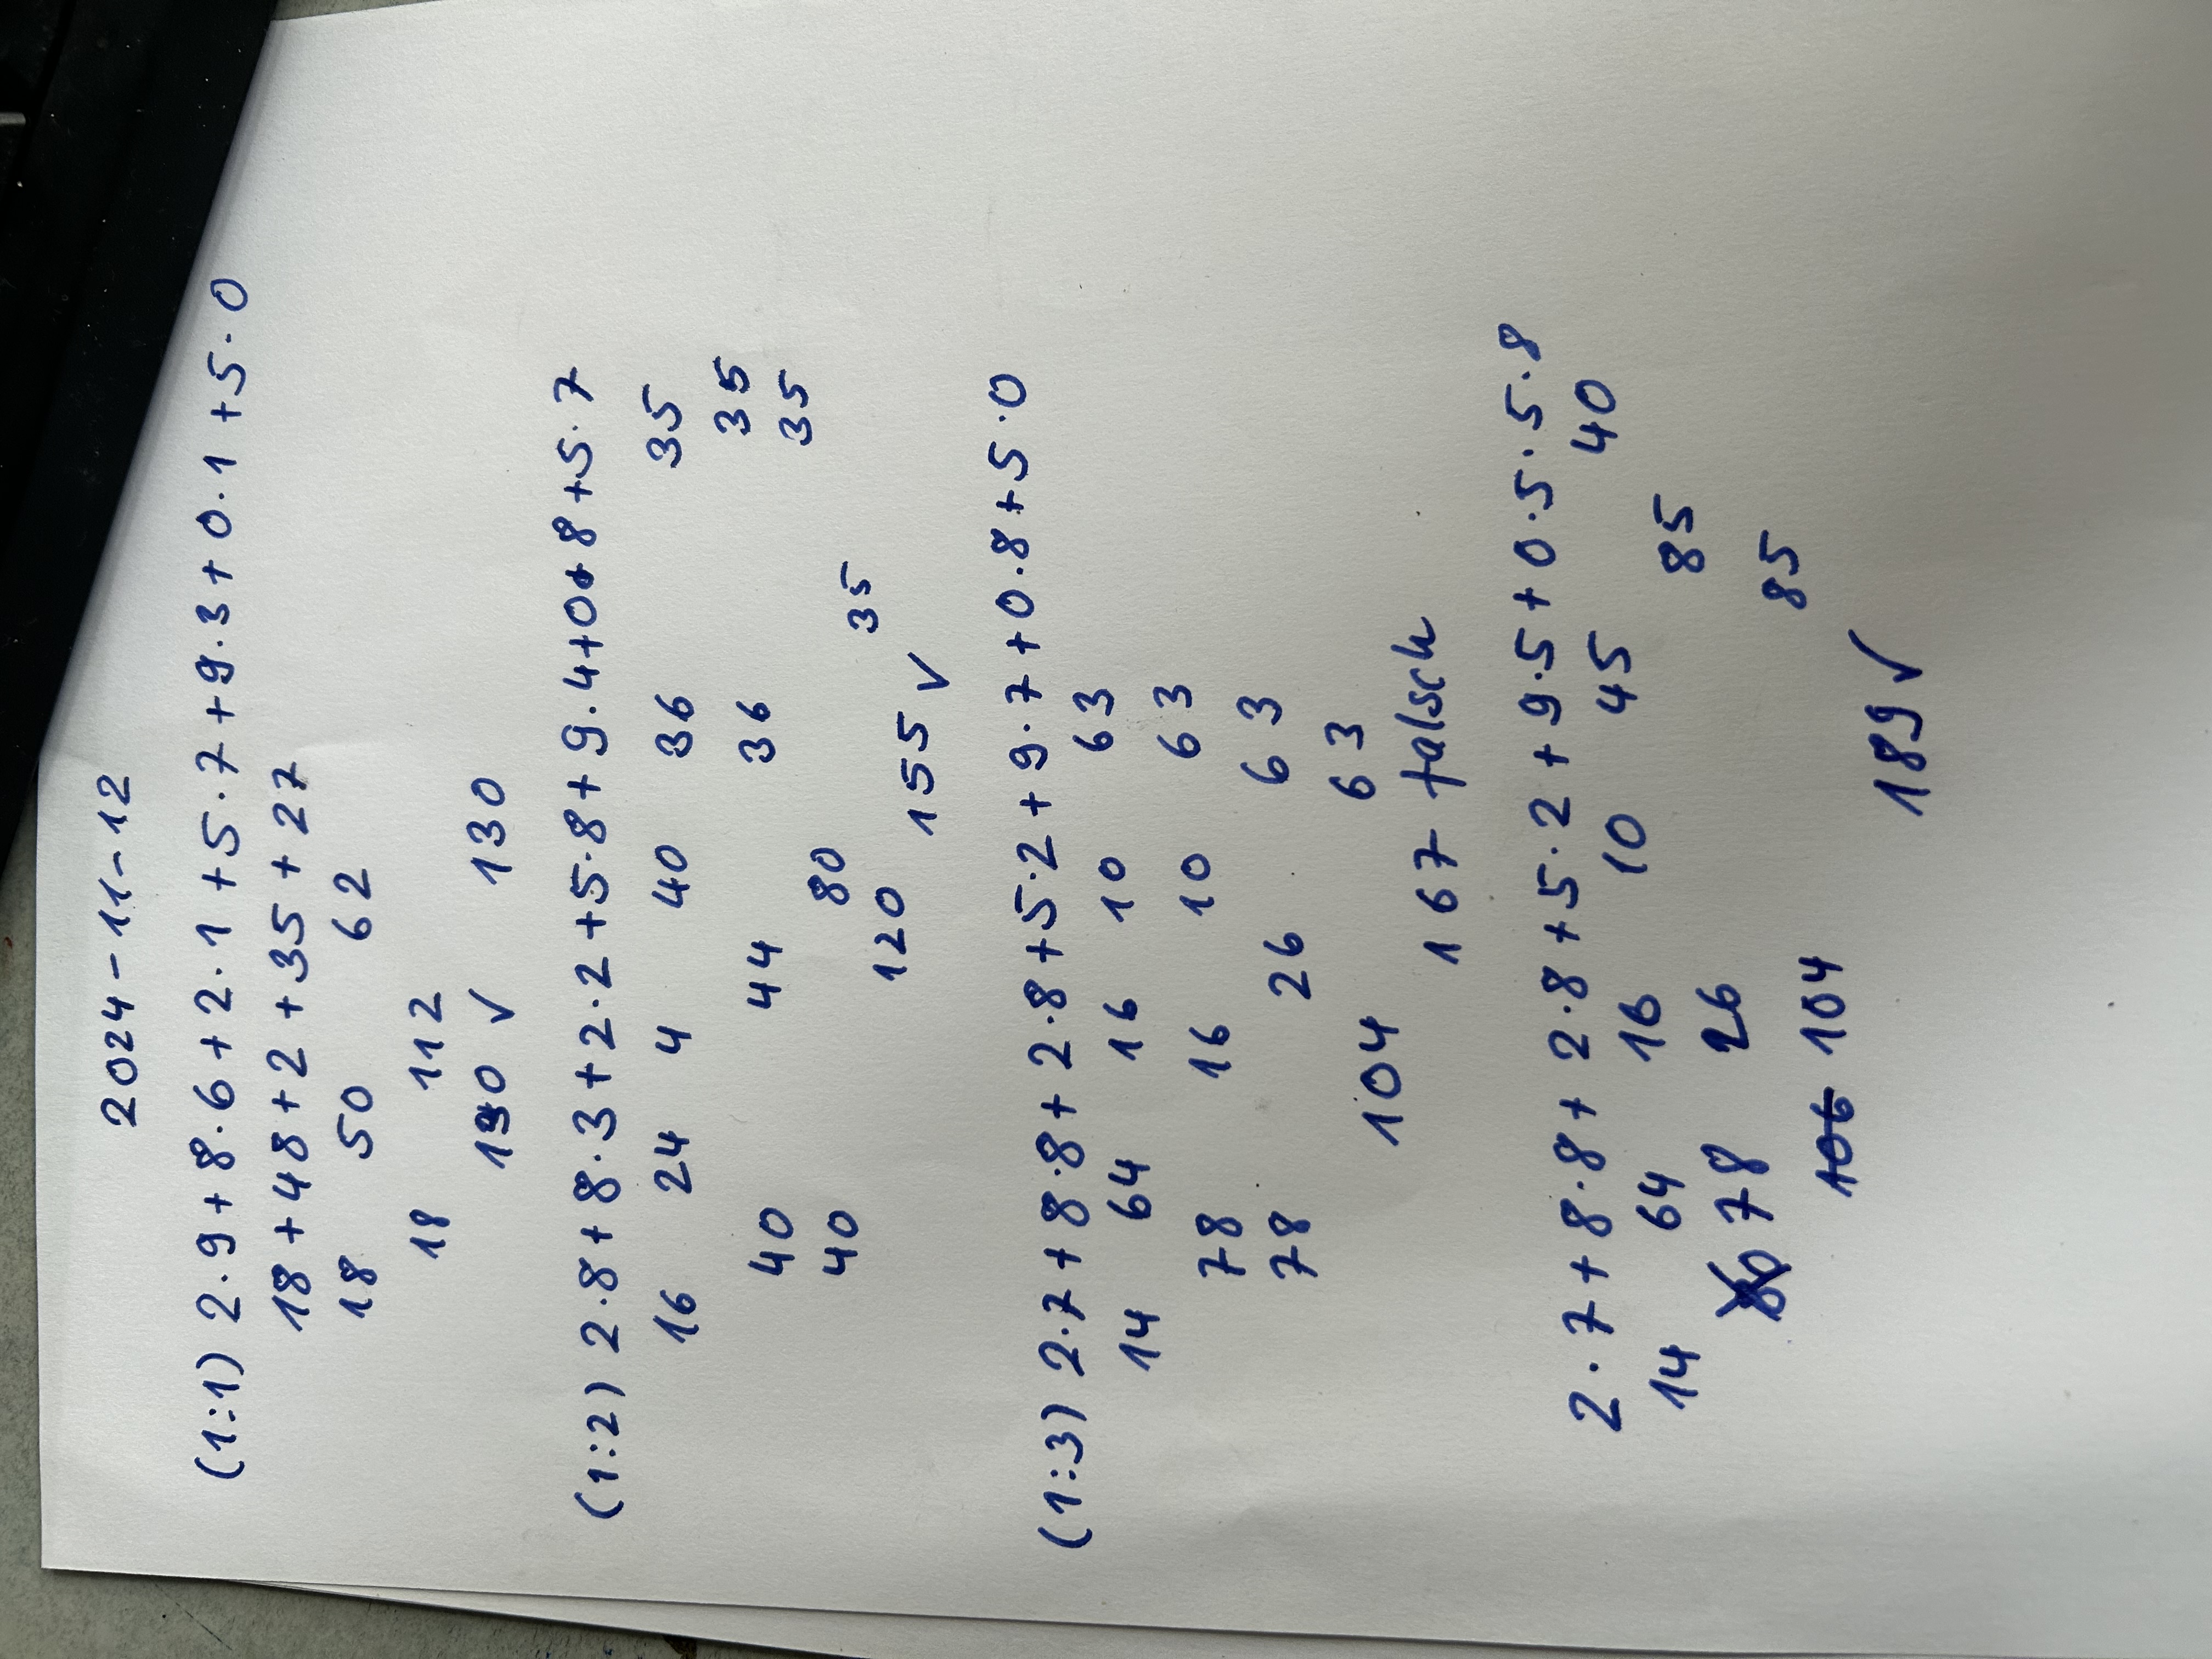 2024-11-12
(1:1) 2·9+8·6+2·1+5·7+9·3+0·1+5·0
18+48+2+35+27
18 50 62
18 112
130 ✓ 130
(1:2) 2·8+8·3+2·2+5·8+9·4+0·8+5·7
16 24 4 40 36 35
40 44 36 35
40 80 35
120 35
155 ✓
(1:3) 2·7+8·8+2·8+5·2+9·7+0·8+5·0
14 64 16 10 63
78 16 10 63
78 26 63
104 63
167 falsch
2·7+8·8+2·8+5·2+9·5+0·5·5·8
14 64 16 10 45 40
78 26 85
106 104 85
189 ✓